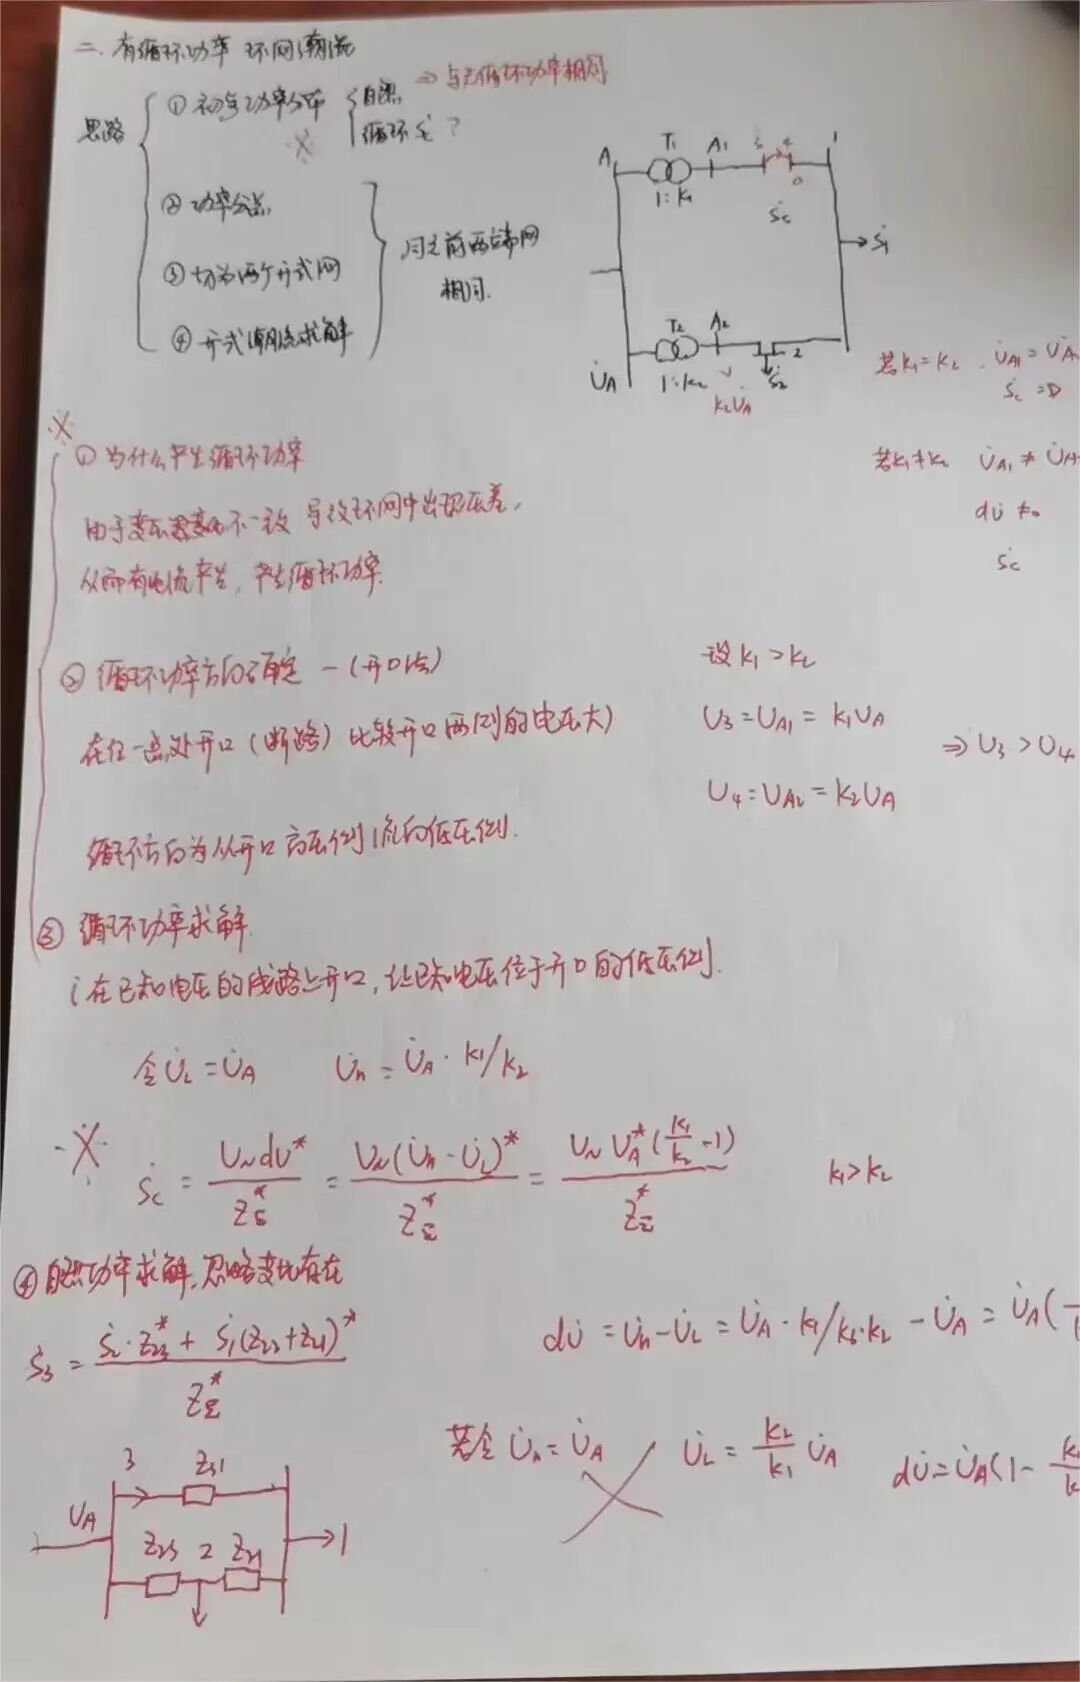 二. 有循环功率 环网潮流
思路
① 初步功率分布 { 自然 ⇒ 与无循环功率相同
循环 Ṡc ?
※
② 功率分点
③ 切为两个开式网
④ 开式潮流求解
与之前两端网
相同.
A T₁ A₁ 3 4 1
1:k₁
Ṡc
Ṡ₁
T₂ A₂ 2
U̇A 1:k₂ Ṡ₂
k₂U̇A
若k₁=k₂ . U̇A₁ = U̇A
Ṡc = 0
若k₁≠k₂ U̇A₁ ≠ U̇A
dU̇ ≠0
Ṡc
※
① 为什么产生循环功率
由于变压器变比不一致 导致环网中出现压差,
从而有电流产生, 产生循环功率.
② 循环功率方向确定 —(开口法)
在任一点处开口(断路) 比较开口两侧的电压大)
循环方向为从开口高压侧流向低压侧.
设 k₁>k₂
U₃=UA₁= k₁UA
⇒ U₃ > U₄
U₄=UA₂=k₂UA
③ 循环功率求解
i 在已知电压的线路上开口, 让已知电压位于开口的低压侧.
令 U̇L = U̇A U̇h = U̇A · k₁/k₂
※ Ṡc = UN dU* / ZΣ* = UN(U̇h - U̇L)* / ZΣ* = UN UA*(k₁/k₂ -1) / ZΣ* k₁>k₂
④ 自然功率求解, 忽略变比存在
Ṡ₃ = Ṡ₂·Z₂₃* + Ṡ₁(Z₂₃+Z₂₁)* / ZΣ*
dU̇ = U̇h-U̇L = U̇A · k₁/k₂·k₂ - U̇A = U̇A(
若令 U̇h = U̇A U̇L = k₂/k₁ U̇A dU̇=U̇A(1-
3 Z₃₁
UA
1
Z₂₃ 2 Z₂₁